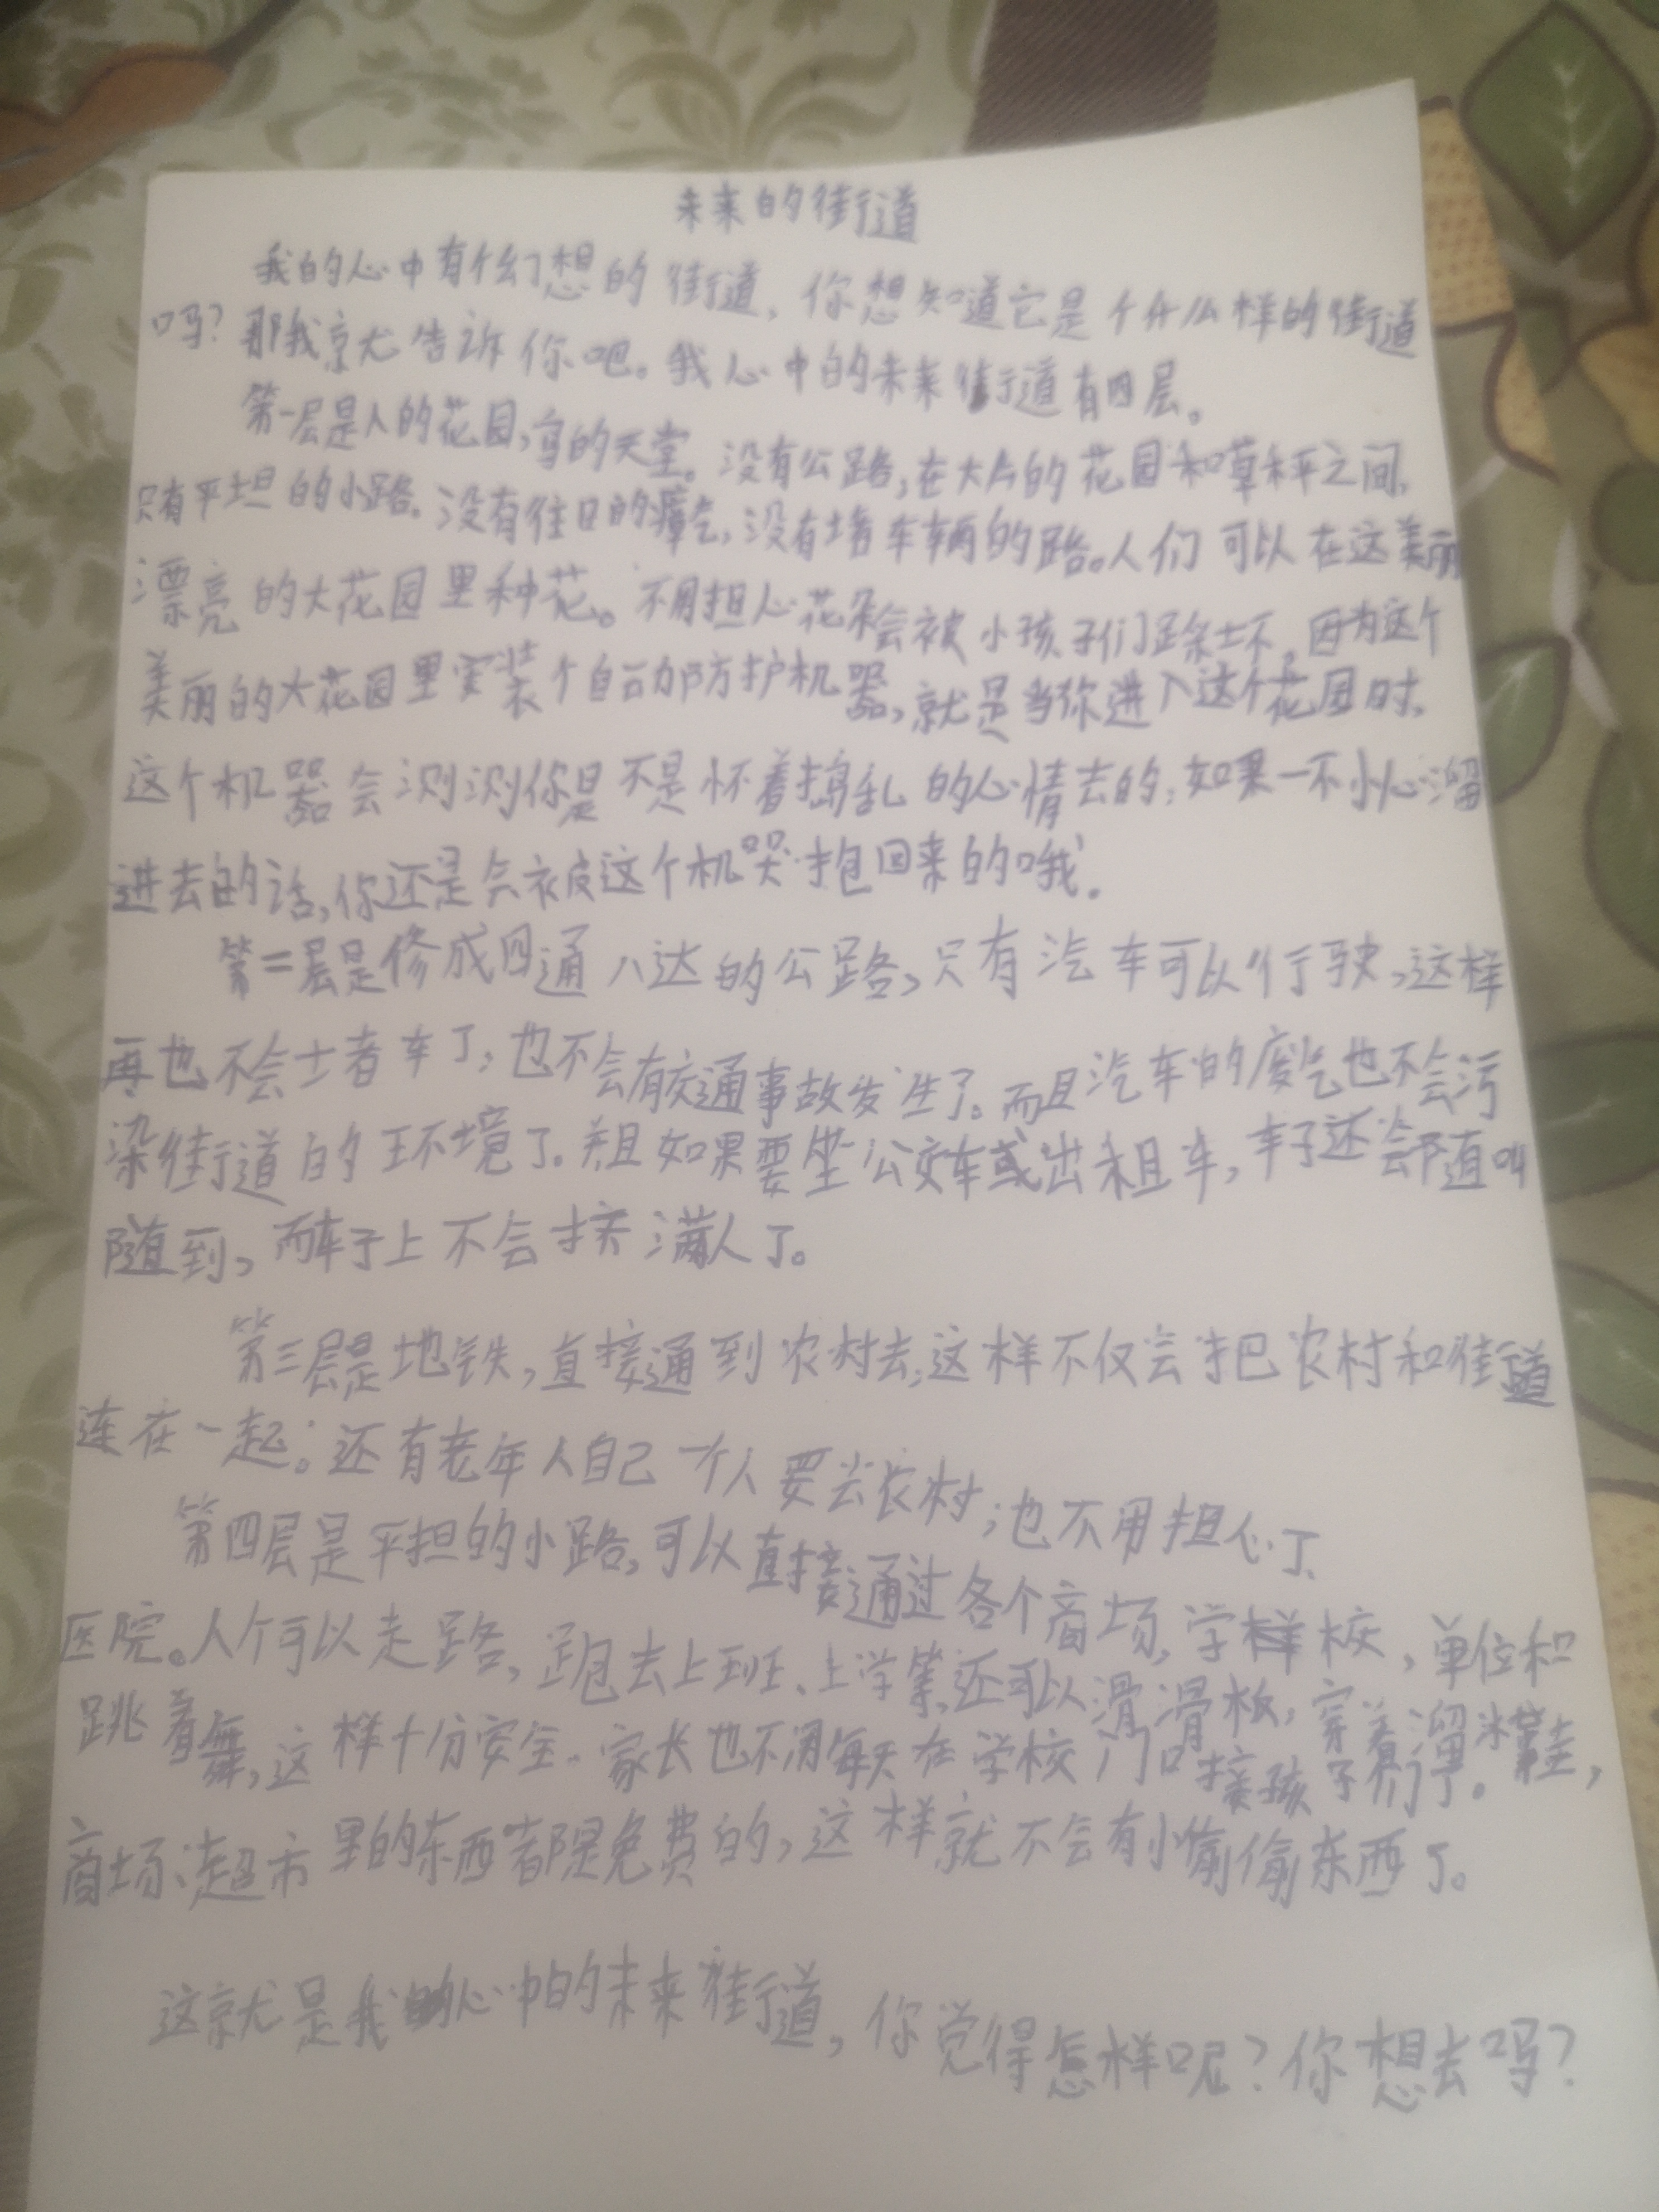 未来的街道
我的心中有个幻想的街道，你想知道它是个什么样的街道
吗？那我就告诉你吧。我心中的未来街道有四层。
第一层是人的花园，鸟的天堂。没有公路，在大片的花园和草坪之间，
只有平坦的小路。没有往日的瘴气，没有堵车辆的路。人们可以在这美丽
漂亮的大花园里种花。不用担心花朵会被小孩子们踩坏，因为这个
美丽的大花园里安装个自动防护机器，就是当你进入这个花园时，
这个机器会测测你是不是怀着捣乱的心情去的；如果一不小心溜
进去的话，你还是会被这个机哭抱回来的哦。
第二层是修成四通八达的公路，只有汽车可以行驶，这样
再也不会堵车了；也不会有交通事故发生了。而且汽车的废气也不会污
染街道的环境了。如果要坐公交车或出租车，车子还会随叫
随到，而车子上不会挤满人了。
第三层是地铁，直接通到农村去，这样不仅会把农村和街道
连在一起。还有老年人自己一个人要去农村；也不用担心了
第四层是平担的小路，可以直接通过各个商场，学校，单位和
医院。人个可以走路，跑去上班、上学等，还可以滑滑板；穿着溜冰鞋，
跳着舞，这样十分安全。家长也不用每天在学校门口接孩子们了。
商场、超市里的东西都是免费的，这样就不会有小偷偷东西了。
这就是我心中的未来街道，你觉得怎样呢？你想去吗？